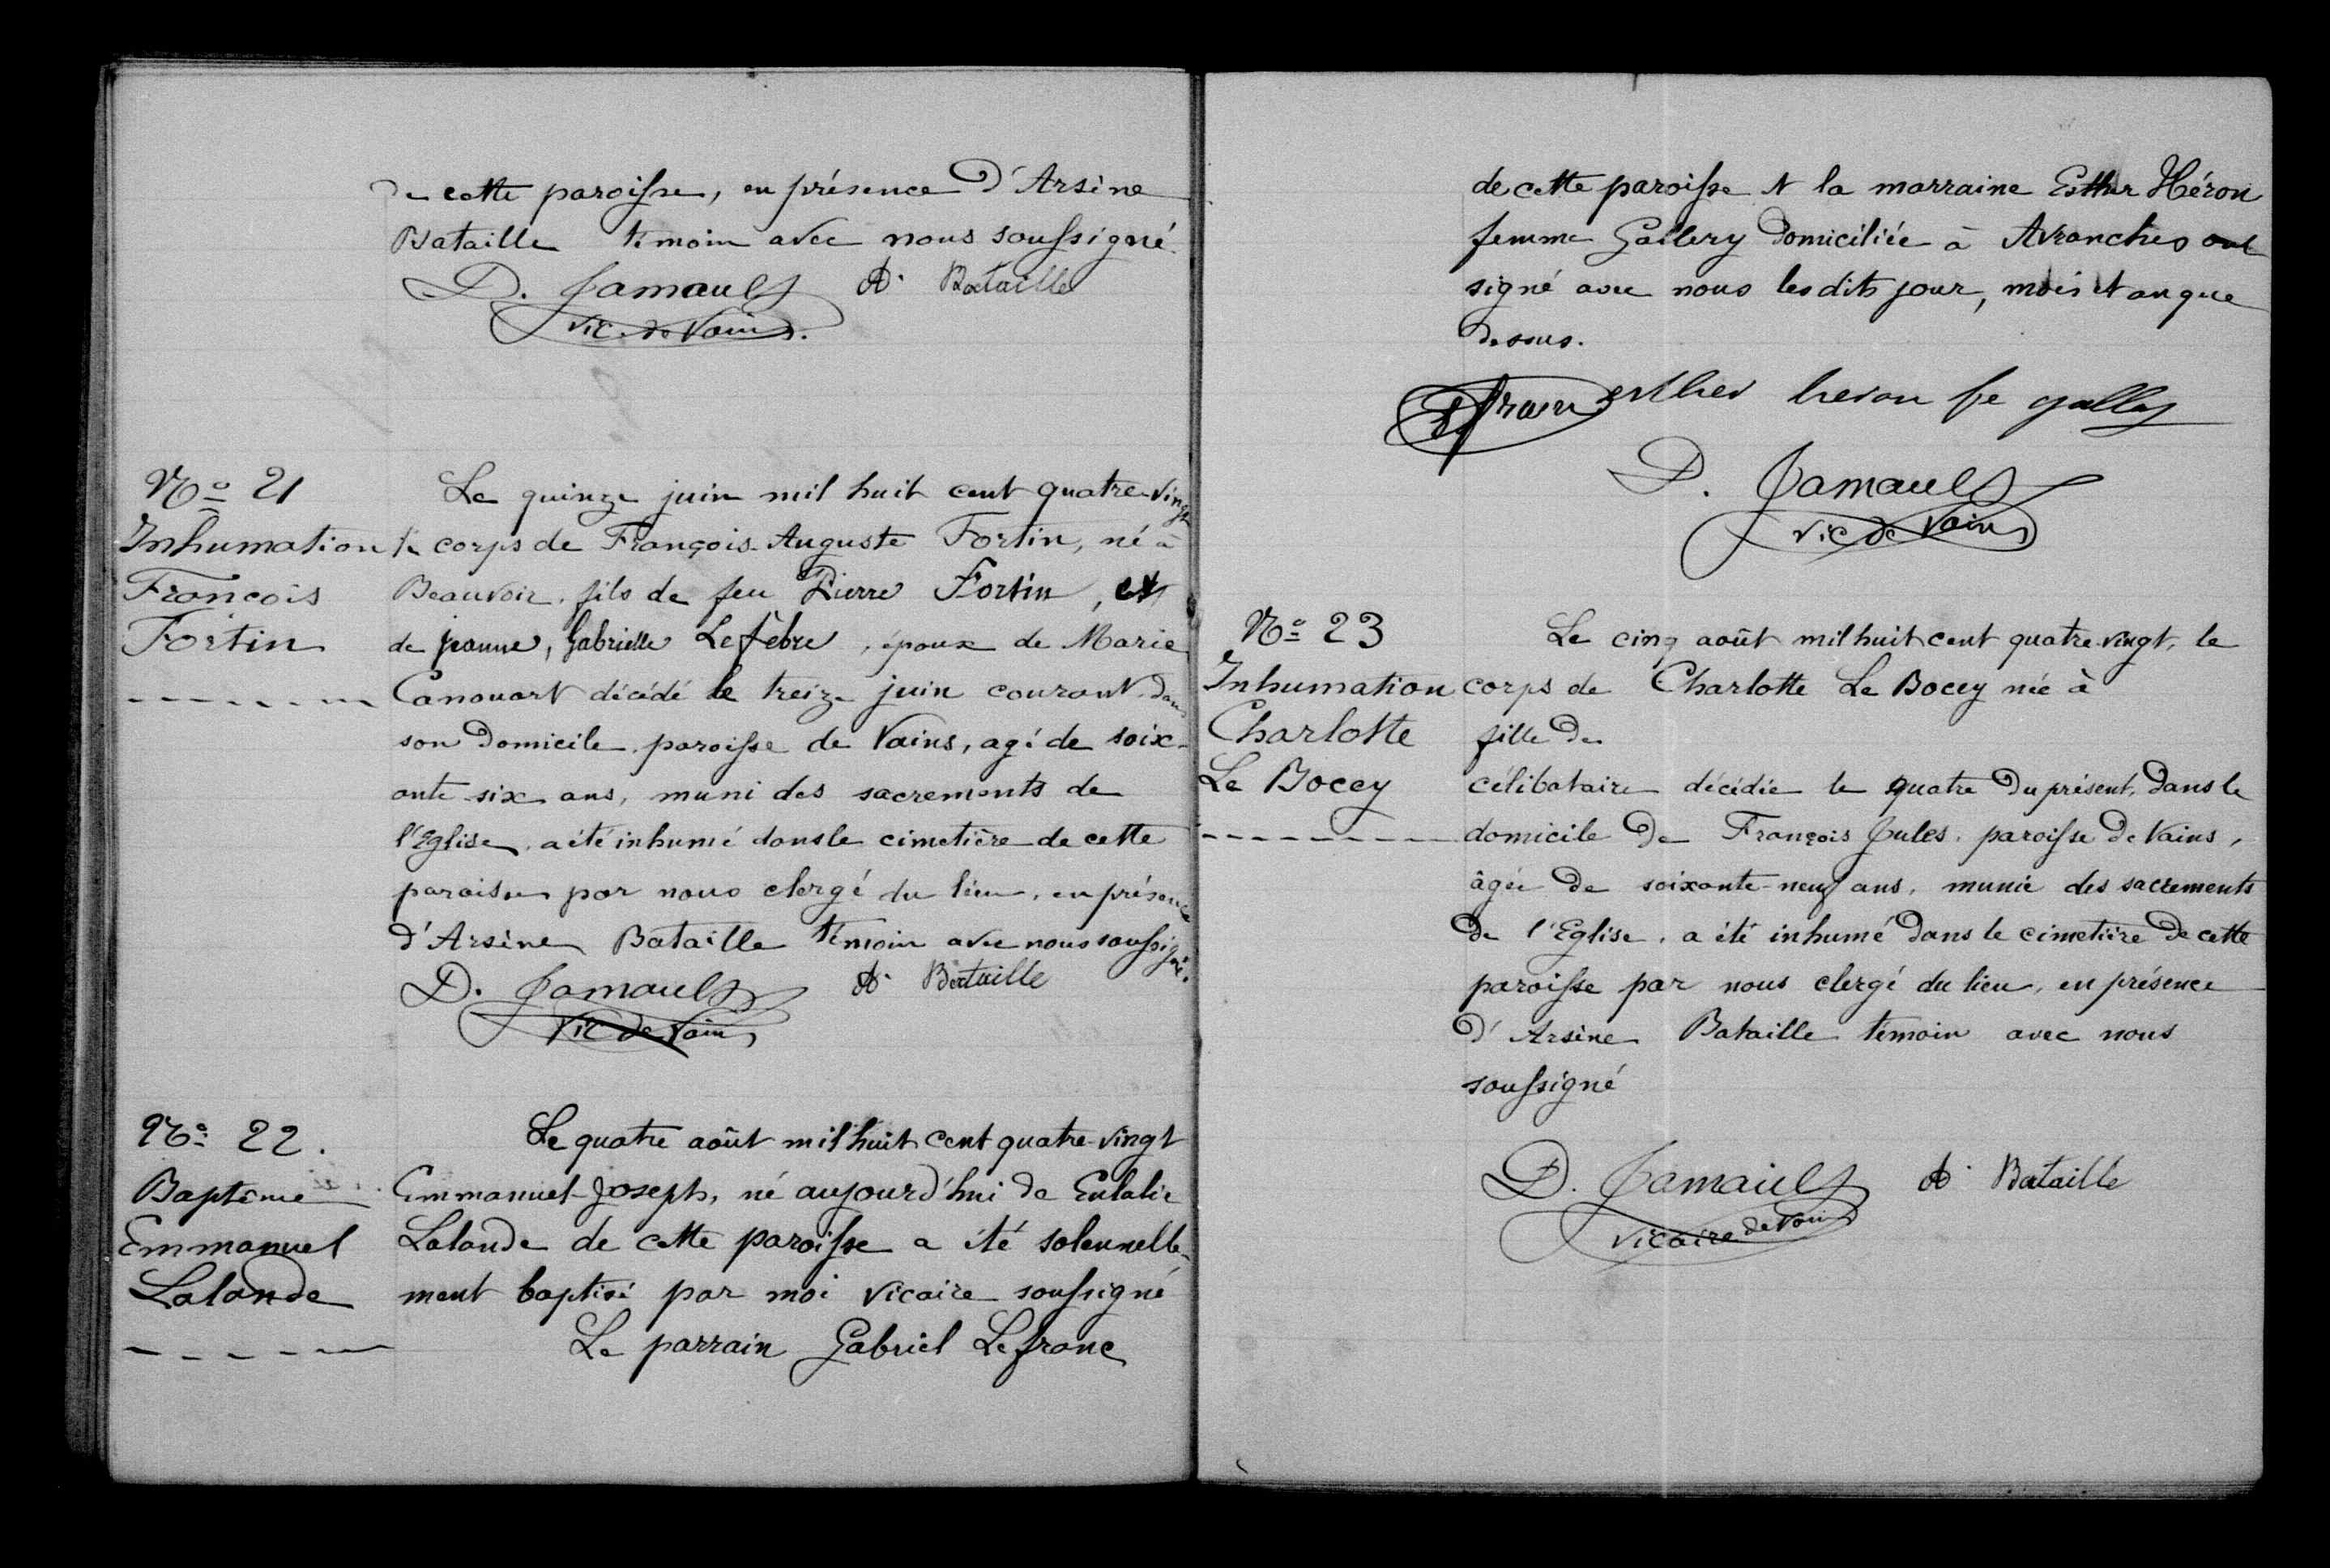 de cette paroisse, en présence d'Arsène
Bataille témoin avec nous soussigné.
D. Jamault A. Bataille
vic. de Vains.
No 21
Inhumation
François
Fortin
Le quinze juin mil huit cent quatre-vingt
le corps de François-Auguste Fortin, né à
Beauvoir, fils de feu Pierre Fortin, et
de jeanne, Gabrielle Lefèbre, époux de Marie
Canouart décédé le treize juin courant dans
son domicile, paroisse de Vains, agé de soix-
ante-six ans, muni des sacrements de
l'Eglise, a été inhumé dans le cimetière de cette
paroisse par nous clergé du lieu, en présence
d'Arsène Bataille témoin avec nous soussigné.
D. Jamault A. Bataille
Vic de Vains
No 22.
Baptême
Emmanuel
Lalande
Le quatre août mil huit cent quatre-vingt
Emmanuel-Joseph, né aujourd'hui de Eulalie
Lalande de cette paroisse a été solennelle-
ment baptisé par moi vicaire soussigné
Le parrain Gabriel Lefranc
de cette paroisse et la marraine Esther Héron
femme Gallery domiciliée à Avranches ont
signé avec nous les dits jour, mois et an que
dessus.
esther heron fe gallery
D. Jamault
vic de Vains
No 23
Inhumation
Charlotte
Le Bocey
Le cinq août mil huit cent quatre-vingt, le
corps de Charlotte Le Bocey née à
fille de
célibataire décédée le quatre du présent, dans le
domicile de François Jules, paroisse de Vains,
âgée de soixante-neuf ans, munie des sacrements
de l'Eglise, a été inhumé dans le cimetière de cette
paroisse par nous clergé du lieu, en présence
d'Arsène Bataille témoin avec nous
soussigné
D. Jamault A. Bataille
vicaire de Vains